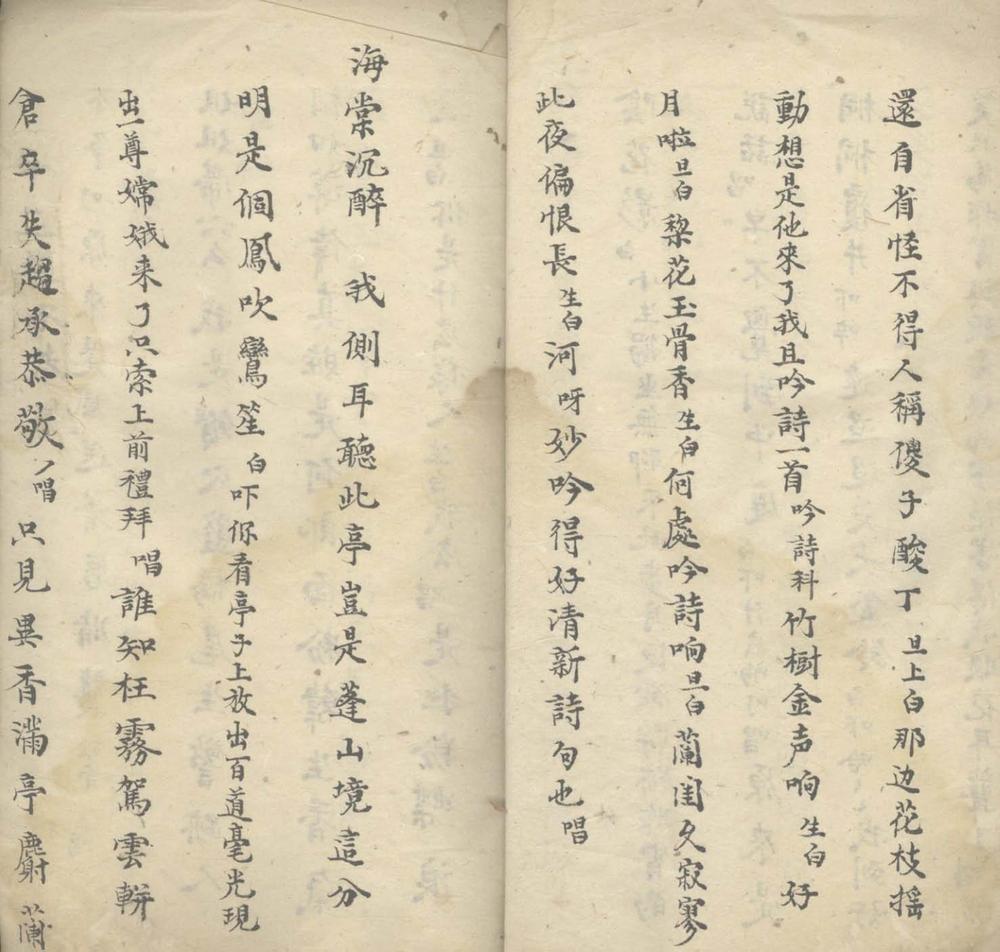 還自省怪不得人稱傻子酸丁旦上白那边花枝摇
動想是他來了我且吟詩一首吟詩科竹樹金声响生白好
月啦旦白梨花玉骨香生白何處吟詩响旦白蘭閨久寂寥
此夜偏恨長生白河呀妙吟得好清新詩句也唱
海棠沉醉我側耳聽此亭豈是蓬山境這分
明是個鳳吹鸞笙白吓你看亭子上放出百道毫光現
出一尊嫦娥来了只索上前禮拜唱誰知枉霧駕雲軿
倉卒失趨承恭敬唱只見異香滿亭麝蘭